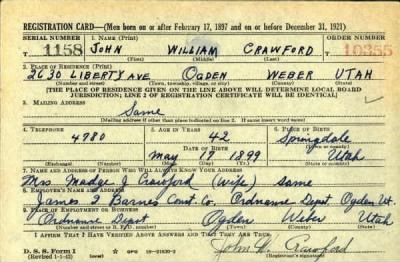 REGISTRATION CARD—(Men born on or after February 17, 1897 and on or before December 31, 1921)
SERIAL NUMBER 1. NAME (Print) ORDER NUMBER
1158 JOHN WILLIAM CRAWFORD 10355
(First) (Middle) (Last)
2. PLACE OF RESIDENCE (Print)
2630 LIBERTY AVE OGDEN WEBER UTAH
(Number and street) (Town, township, village, or city) (County) (State)
[THE PLACE OF RESIDENCE GIVEN ON THE LINE ABOVE WILL DETERMINE LOCAL BOARD
JURISDICTION; LINE 2 OF REGISTRATION CERTIFICATE WILL BE IDENTICAL]
3. MAILING ADDRESS
Same
[Mailing address if other than place indicated on line 2. If same insert word same]
4. TELEPHONE 5. AGE IN YEARS 6. PLACE OF BIRTH
4780 42 Springdale
DATE OF BIRTH (Town or county)
May 19 1899 Utah
(Exchange) (Number) (Mo.) (Day) (Yr.) (State or country)
7. NAME AND ADDRESS OF PERSON WHO WILL ALWAYS KNOW YOUR ADDRESS
Mrs Madge J Crawford (Wife) same
8. EMPLOYER'S NAME AND ADDRESS
James J Barnes Const. Co. Ordname Depot Ogden Ut.
9. PLACE OF EMPLOYMENT OR BUSINESS
Ordnance Depot Ogden Weber Utah
(Number and street or R. F. D. number) (Town) (County) (State)
I AFFIRM THAT I HAVE VERIFIED ABOVE ANSWERS AND THAT THEY ARE TRUE.
John W. Crawford
D. S. S. Form 1
(Revised 1-1-42) (over) (Registrant's signature)